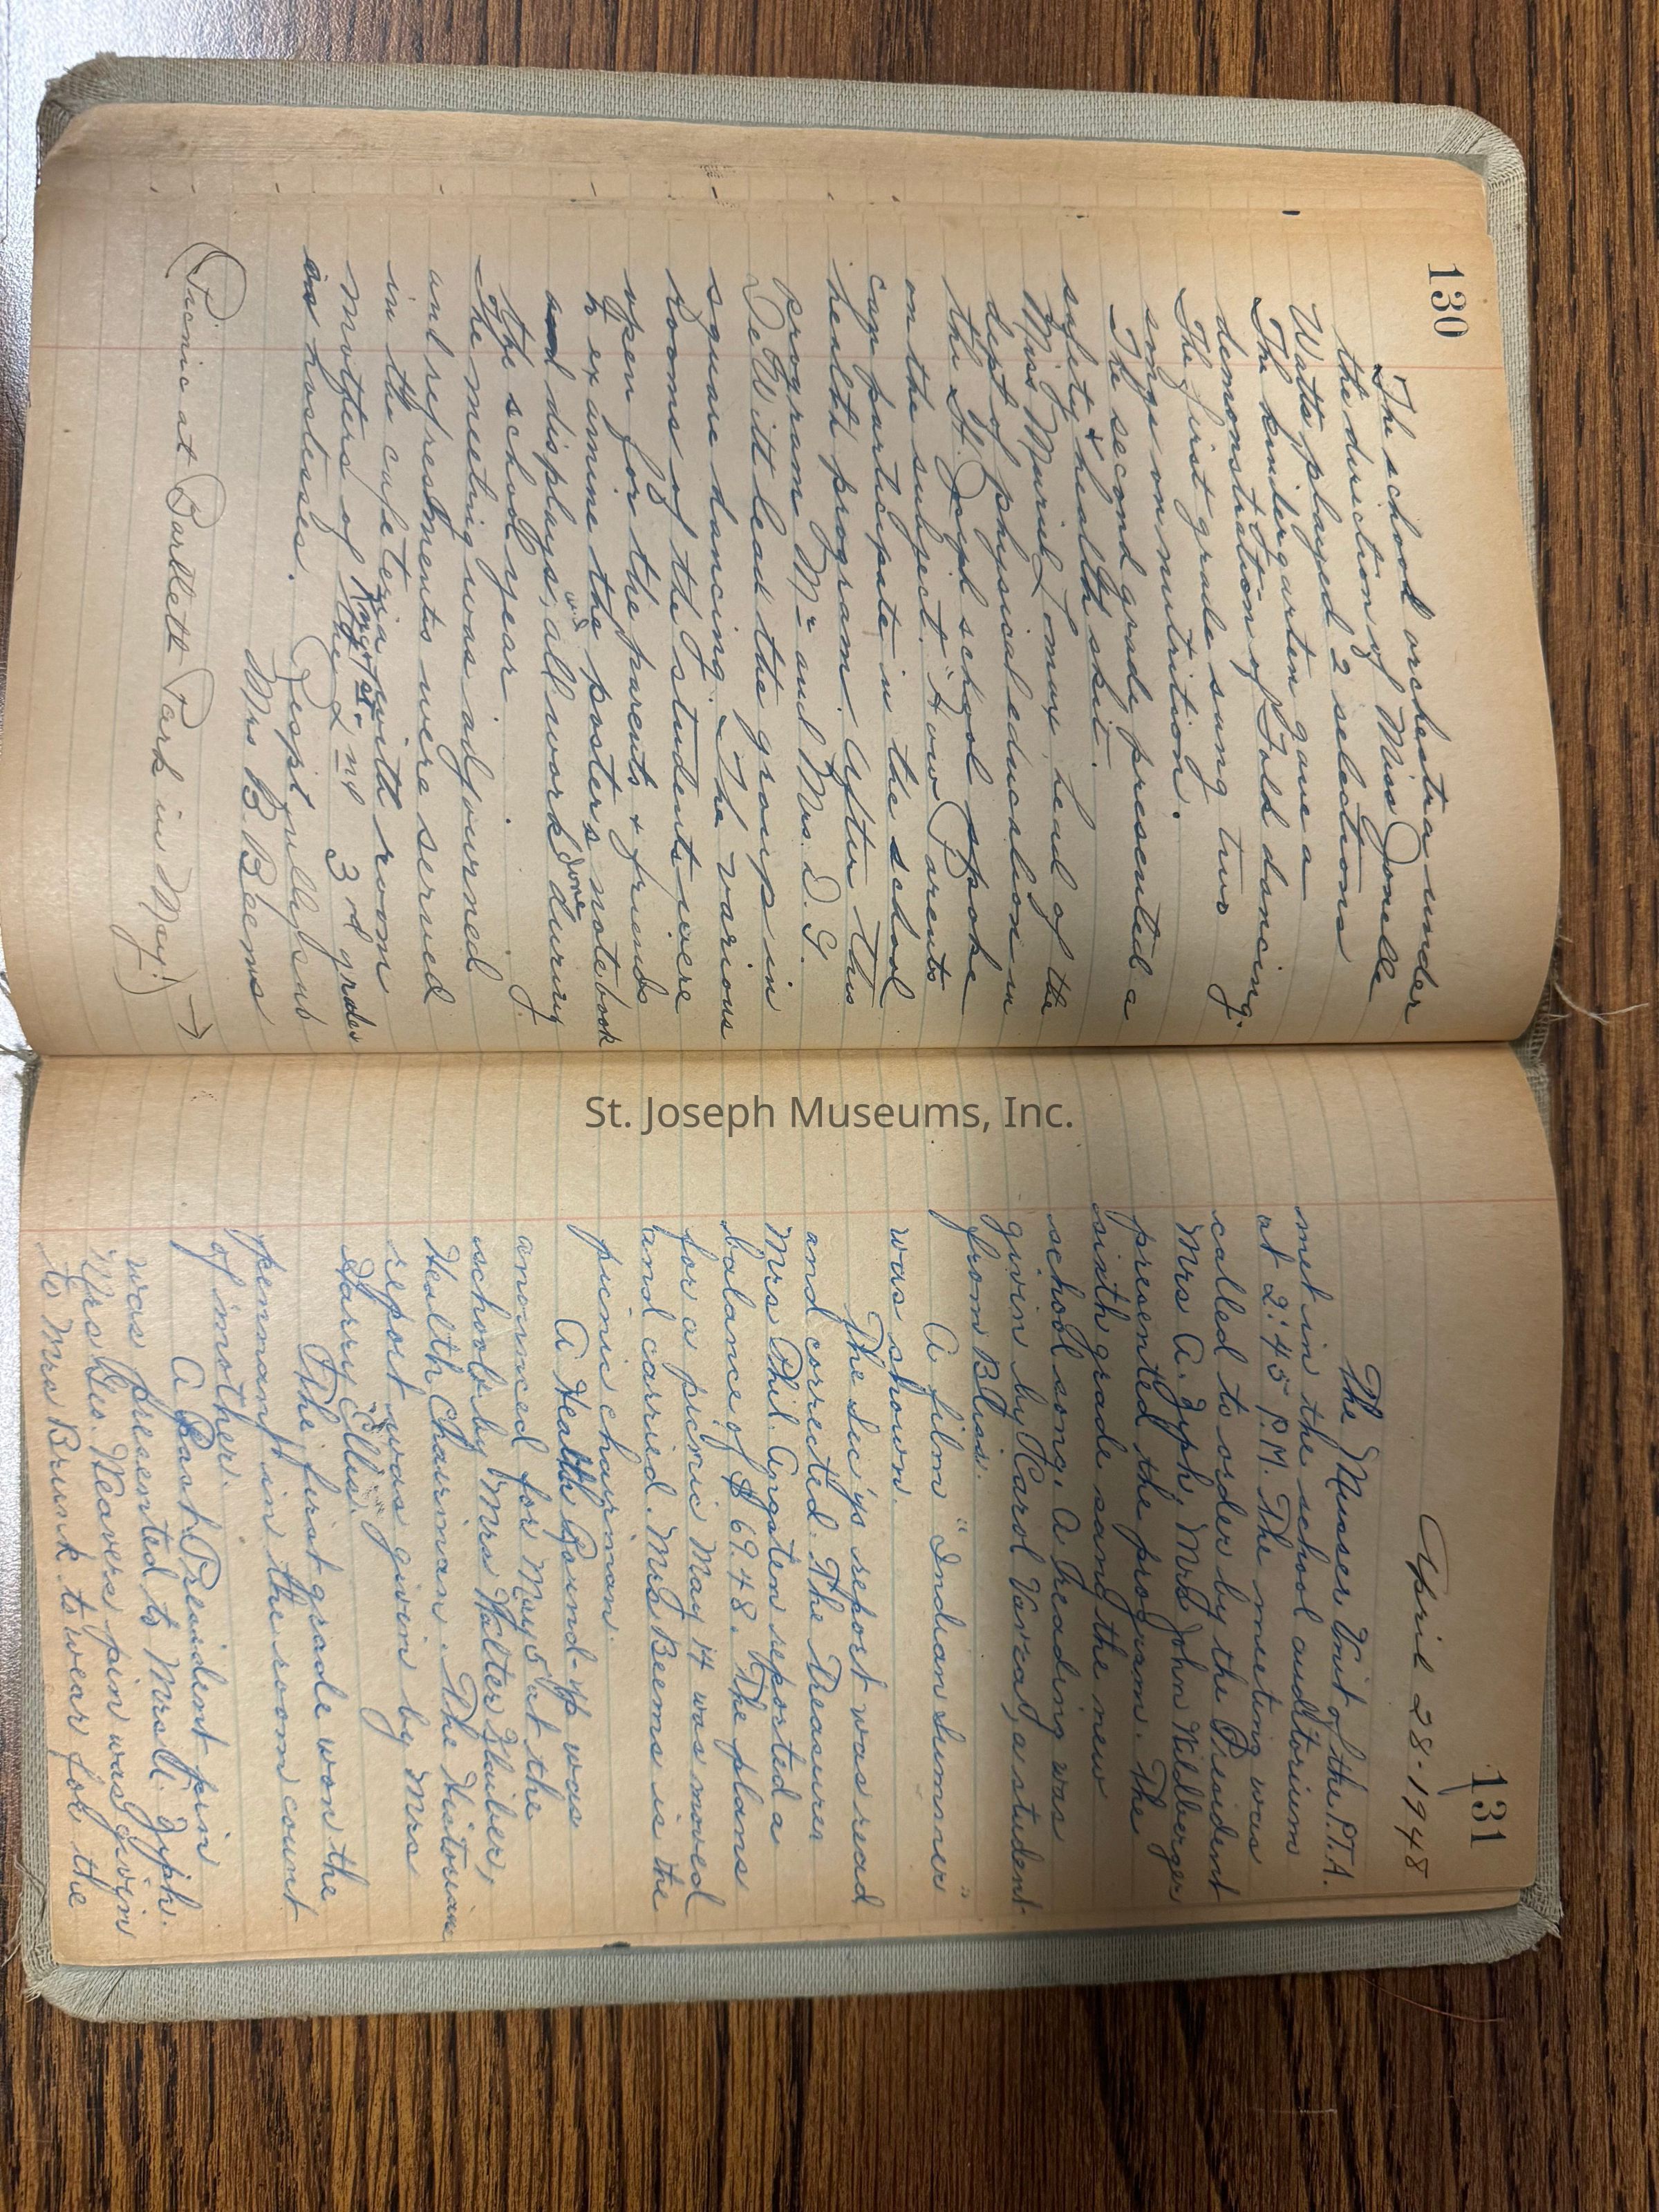 130
The school orchestra under
the direction of Miss Jonelle
Watts played 2 selections
The kindergarten gave a
demonstration of Folk dancing.
The first grade sang two
songs on nutrition.
The second grade presented a
safety & health skit.
Miss Muriel Lomax, head of the
dept of physical education in
the St. Joseph school spoke
on the subject "How Parents
can participate in the school
health program. After this
program Mr and Mrs. D. G.
DeWitt lead the group in
square dancing. The various
Rooms of the students were
open for the parents & friends
to examine the posters, notebook
and displays, all work done during
the school year.
The meeting was adjourned
and refreshments were served
in the cafeteria with room
mothers of the King, 1st, 2nd 3rd grades
as hostesses.
Respt fully sub
Mrs B. Beems
(Picnic at Bartlett Park in May.) →
St. Joseph Museums, Inc.
131
April 28-1948
The Musser Unit of the P.T.A.
met in the school auditorium
at 2:45 P.M. The meeting was
called to order by the President
Mrs. A. Zyph. Mrs John Wildberger
presented the program. The
sixth grade sang the new
school song. A reading was
given by Carol Vavra, a student
from Bliss.
A film "Indian Summer"
was shown.
The Sec'ys report was read
and corrected. The Treasurer
Mrs Phil Angsten reported a
balance of $69.48. The plans
for a picnic May 14 was moved
and carried. Mrs Beems is the
picnic chairman.
A Health Round-up was
anounced for May 5 at the
school by Mrs Walter Shuiber,
Health Chairman. The Historian
report was given by Mrs
Harry Ellis.
The first grade won the
pennant in the room count
of mother.
A Past President pin
was presented to Mrs A. Zyph.
Mrs Geo. Weavers pin was given
to Mrs Brunk to wear for the